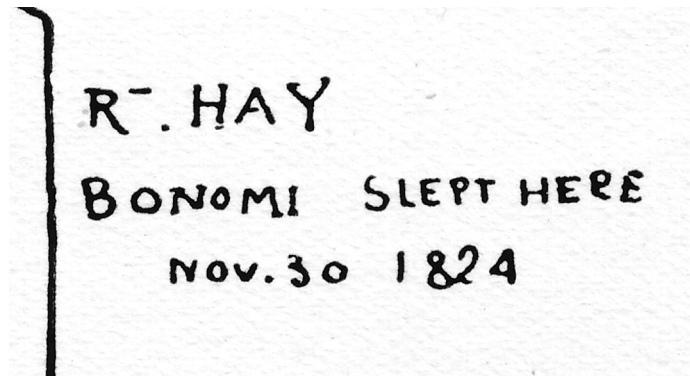 R-. HAY
BONOMI SLEPT HERE
NOV. 30 1824